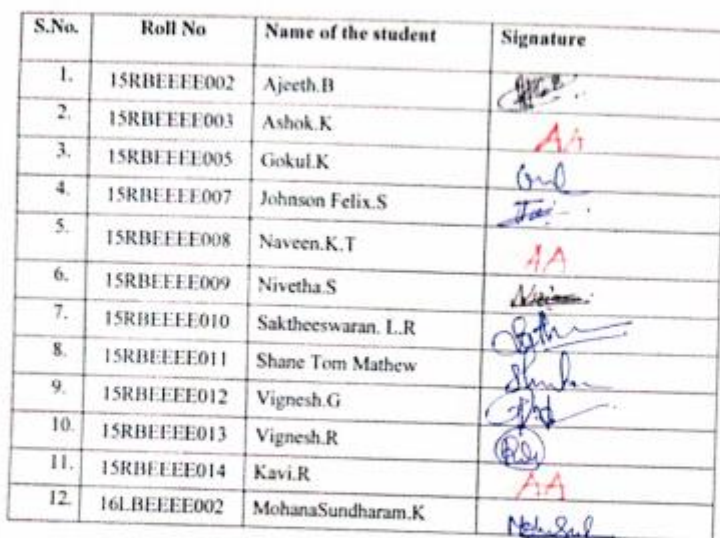 S.No. Roll No Name of the student Signature
1. 15RBEEEE002 Ajeeth.B
2. 15RBEEEE003 Ashok.K AA
3. 15RBEEEE005 Gokul.K
4. 15RBEEEE007 Johnson Felix.S
5. 15RBEEEE008 Naveen.K.T AA
6. 15RBEEEE009 Nivetha.S
7. 15RBEEEE010 Saktheeswaran. L.R
8. 15RBEEEE011 Shane Tom Mathew
9. 15RBEEEE012 Vignesh.G
10. 15RBEEEE013 Vignesh.R
11. 15RBEEEE014 Kavi.R AA
12. 16LBEEEE002 MohanaSundharam.K